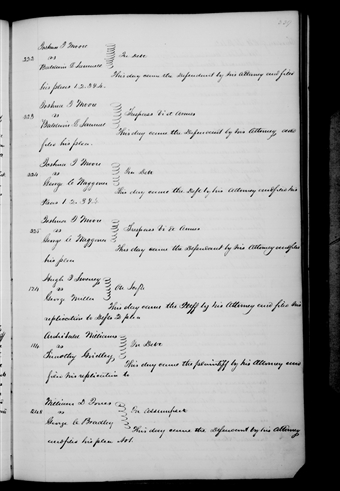 Joshua J Moore
332 vs In Debt
Baldwin G Sammel
This day came the Defendant by his Attorney and files
his pleas 1. 2. 3 & 4.
Joshua J Moore
333 vs Trespass Vi et Armis
Baldwin G Sammel
This day came the Defendant by his Attorney and
files his plea.
Joshua J Moore
334 vs In Debt
George A Waggoner
This day came the Deft by his Attorney and files his
Pleas 1. 2. 3 & 4
Joshua J Moore
335 vs Trespass Vi et Armis
George A Waggoner
This day came the Defendant by his Attorney and files
his plea
Hugh J Sweney
174 vs
George Miller
This day came the Plff by his Attorney and files his
replication to Defts 2 plea
Archibald Williams
114 vs In Debt
Timothy Gridley
This day came the plaintiff by his Attorney and
files his replication to
William D Jones
vs In Assumpsit
George A Bradley
This day came the Defendant by his Attorney
and files his plea No1.